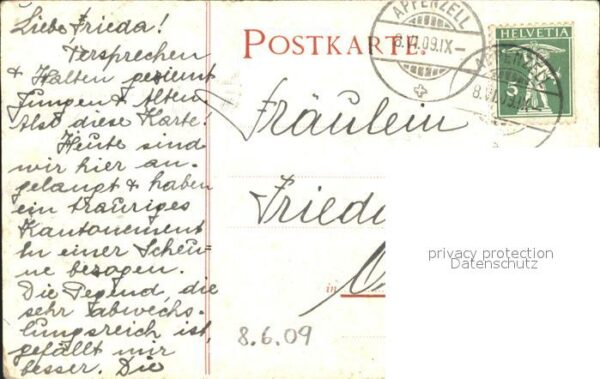 Liebe Frieda!
Versprechen
& Halten geziemt
Jungen & Alten
Also diese Karte!
Heute sind
wir hier an-
gelangt & haben
ein trauriges
Kantonement
In einer Scheu-
ne bezogen.
Die Gegend, die
sehr abwechs-
lungsreich ist,
gefällt mir
besser. Die
POSTKARTE.
APPENZELL
8.VI.09.IX-
HELVETIA
5
APPENZELL
8.VI.09.IX
Fräulein
Frieda
in
privacy protection
Datenschutz
8.6.09